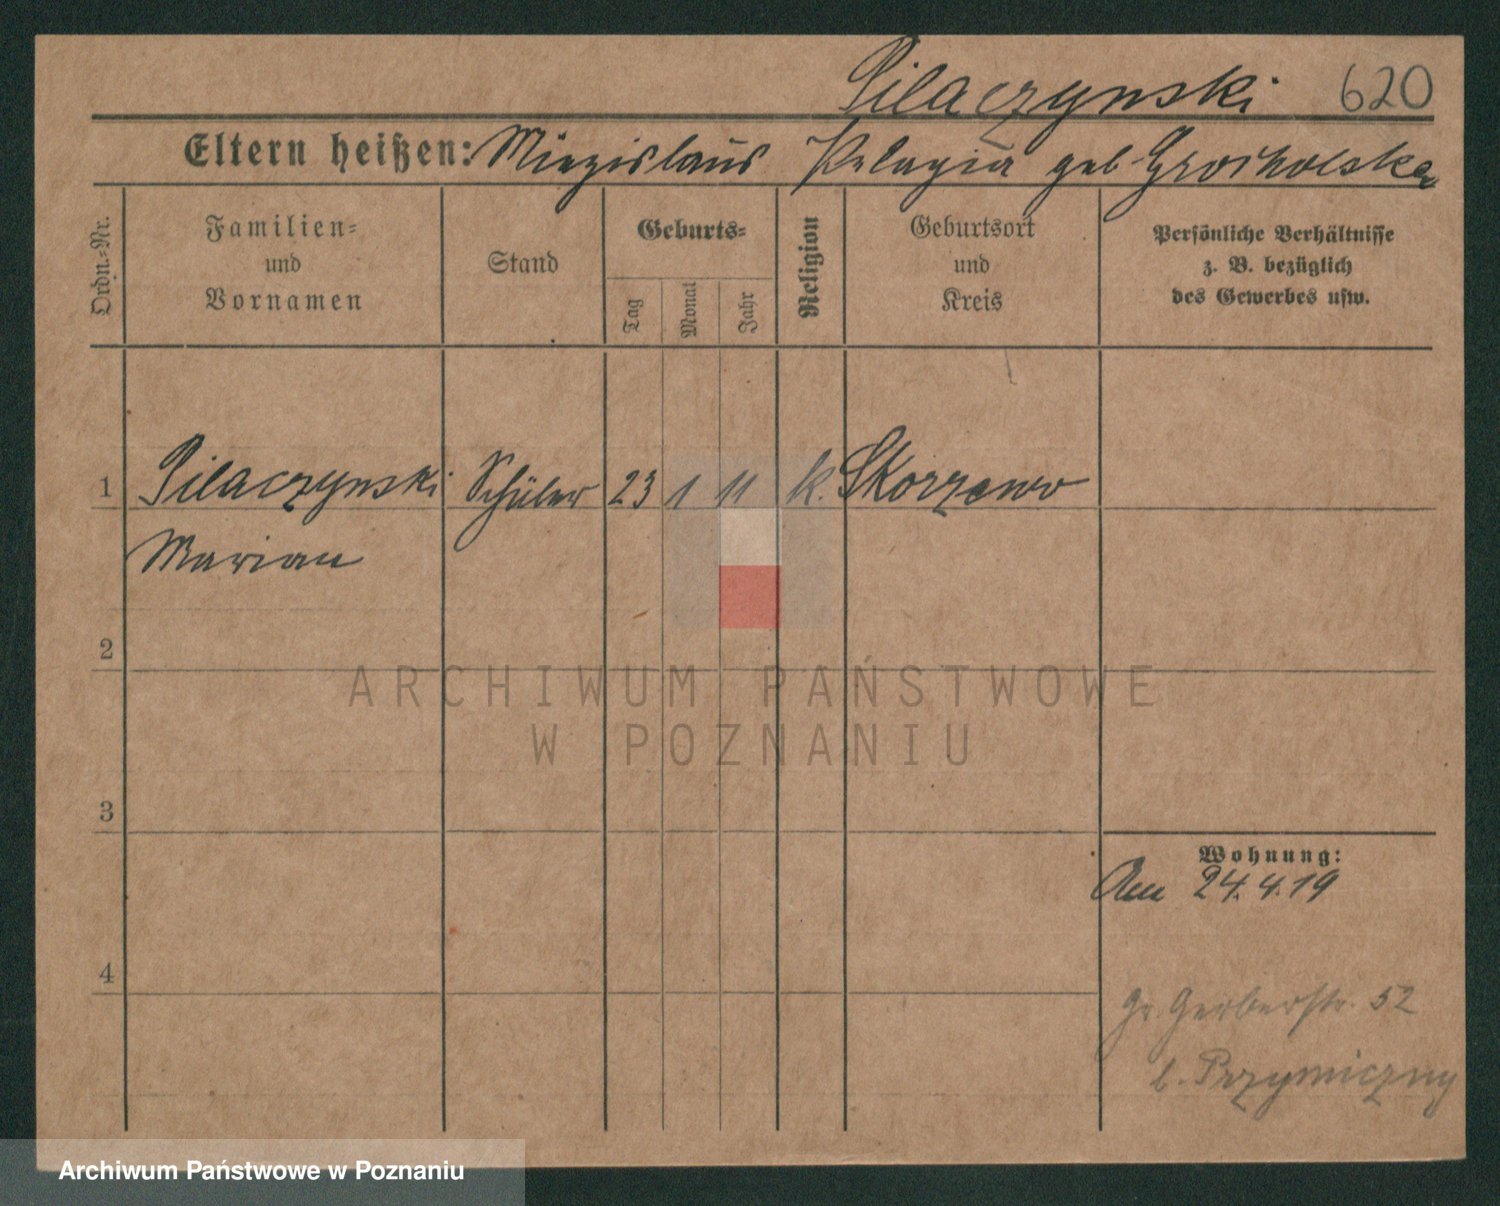 Pilaczynski 620
Eltern heißen: Miezislaus Pelagia geb Grocholska
Ordn.-Nr.
Familien-
und
Vornamen
Stand
Geburts-
Tag
Monat
Jahr
Religion
Geburtsort
und
Kreis
Persönliche Verhältnisse
z. B. bezüglich
des Gewerbes usw.
1 Pilaczynski Schüler 23 1 11 k. Skorzewo
Marian
2
3
4
Wohnung:
Am 24.4.19
Gr. Gerberstr. 52
b. Przymiczny
ARCHIWUM PAŃSTWOWE
W POZNANIU
Archiwum Państwowe w Poznaniu